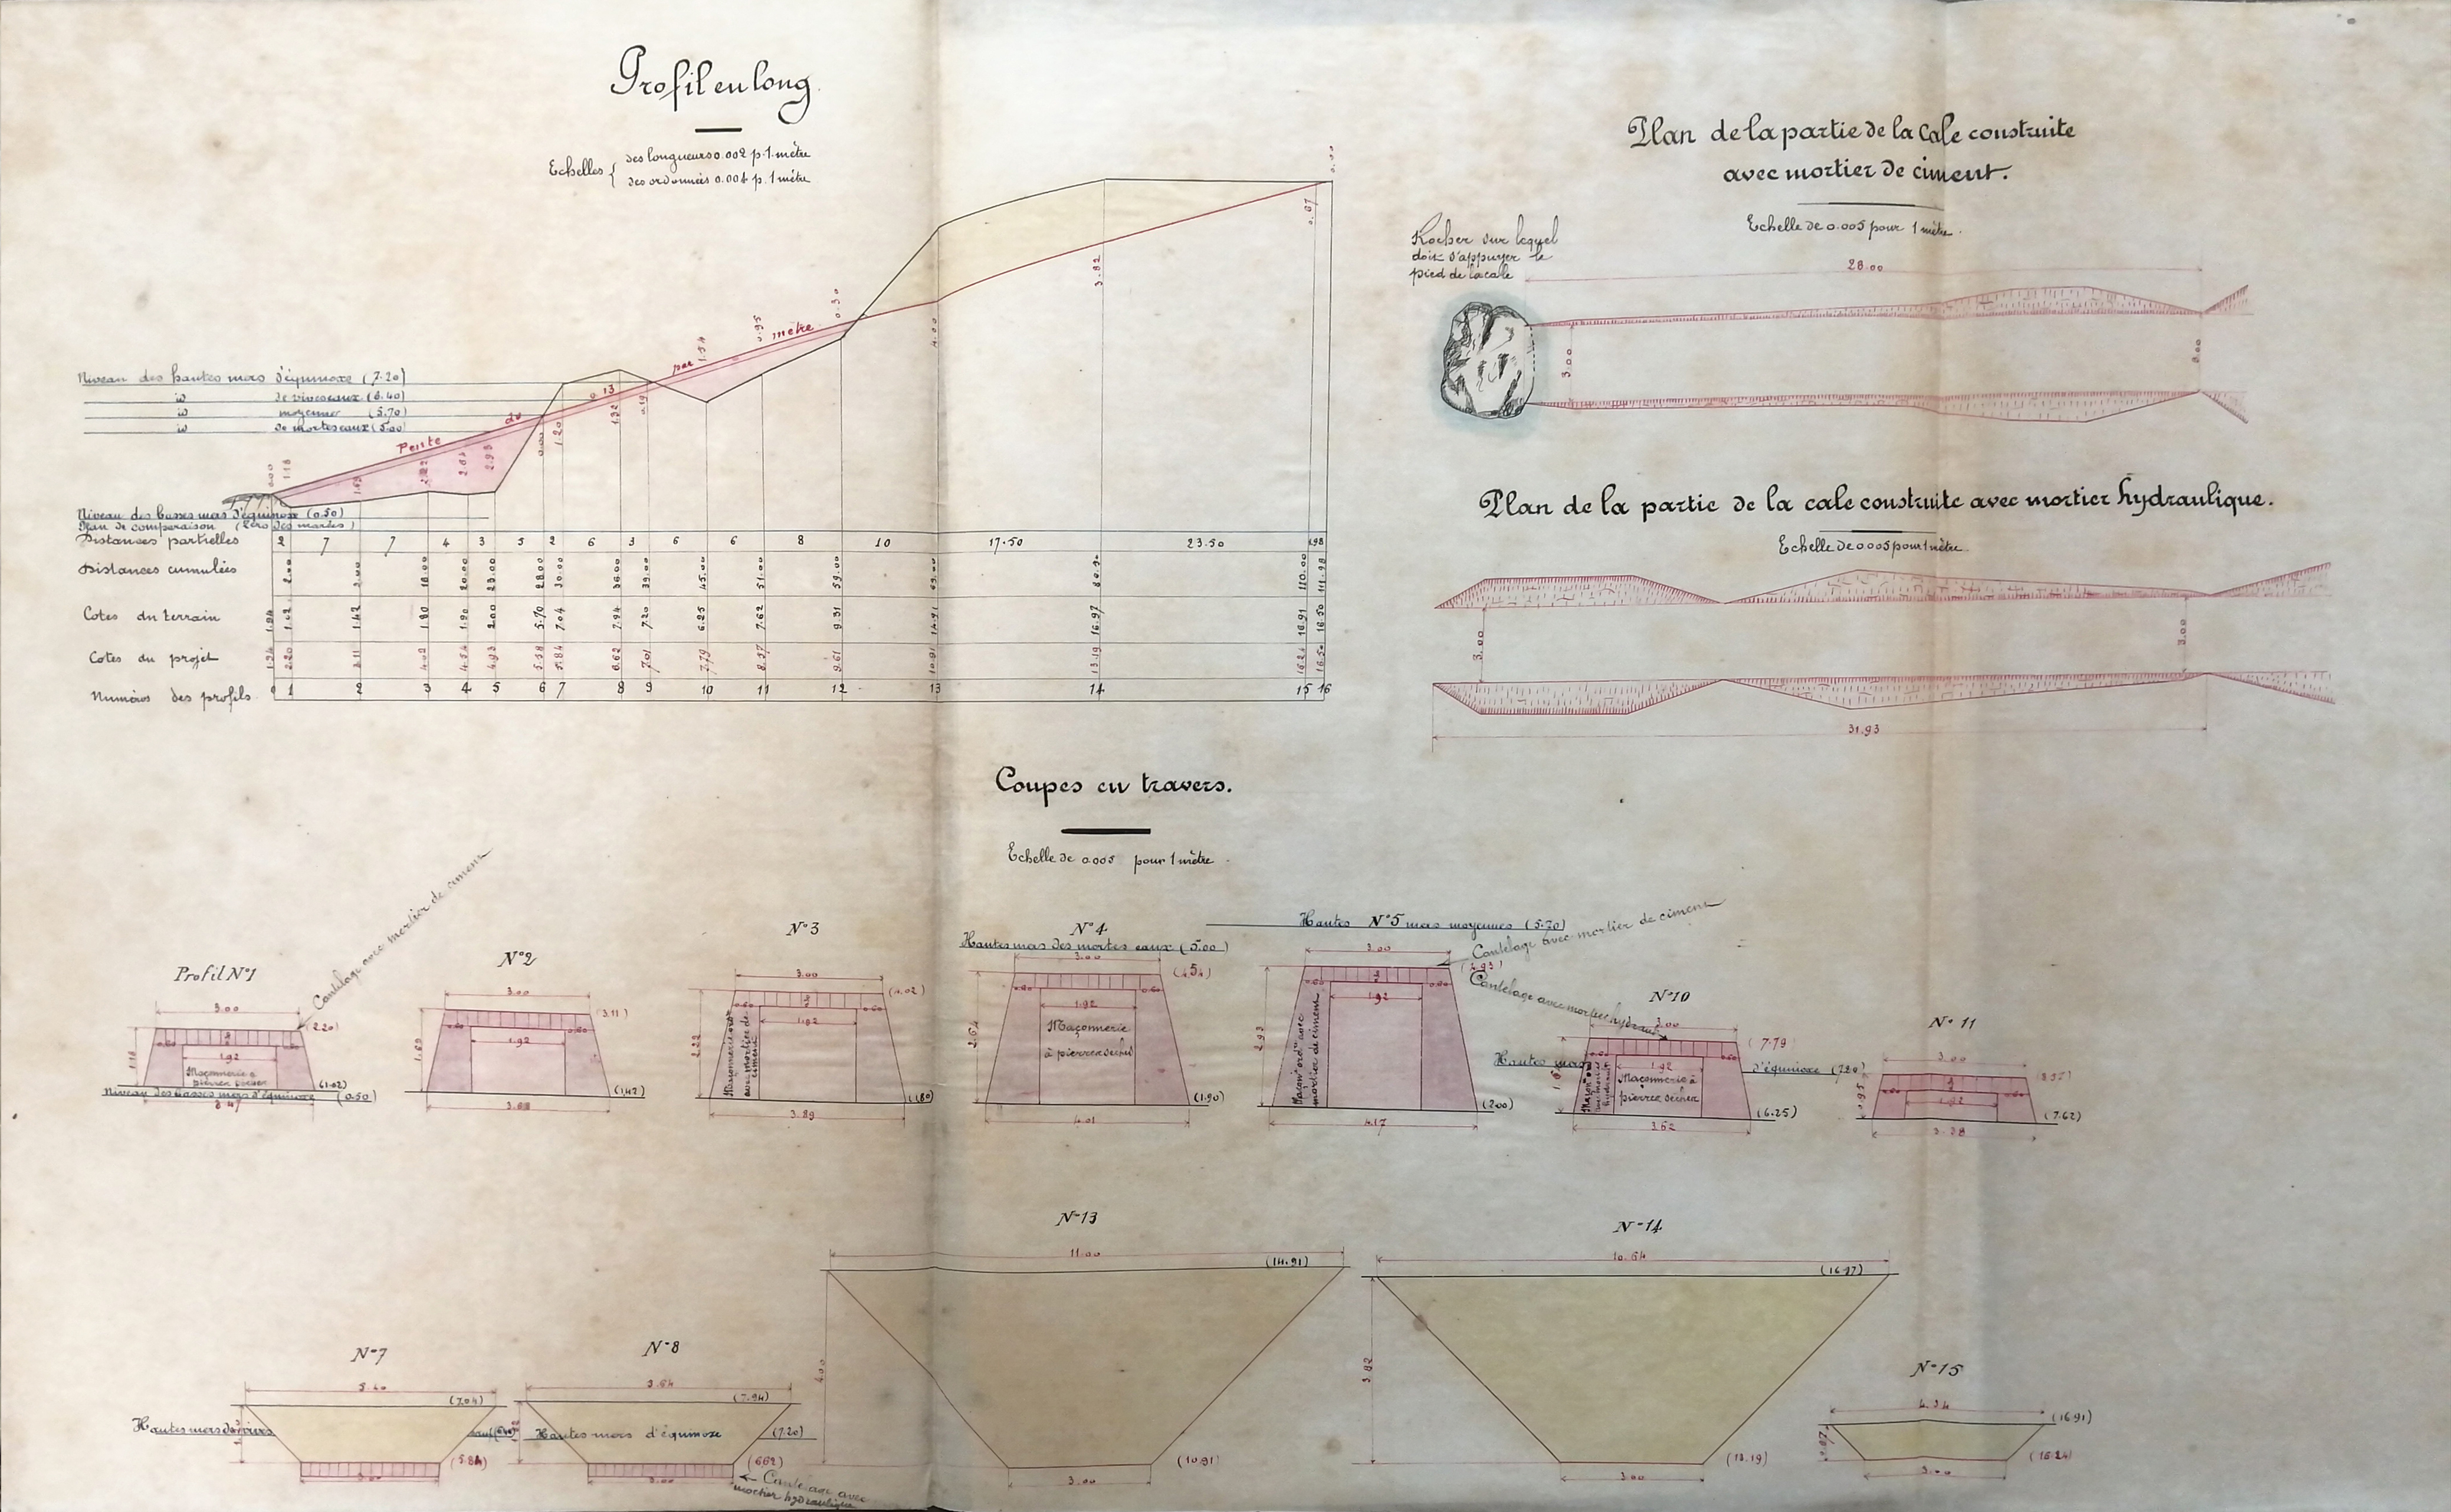 Profil en long.
Echelles { des longueurs 0.002 p. 1 mètre
des ordonnées 0.004 p. 1 mètre
Pente de 0.13 par mètre
0.00
1.18
1.69
2.22
2.64
2.93
1.20
1.32
0.19
1.54
0.95
0.30
4.00
3.82
0.67
Niveau des hautes mers d'équinoxe (7.20)
id de vives eaux (6.40)
id moyennes (5.70)
id de mortes eaux (5.00)
Niveau des basses mers d'équinoxe (0.50)
Plan de comparaison (Zéro des marées)
Distances partielles 2 7 7 4 3 5 2 6 3 6 6 8 10 17.50 23.50 1.98
Distances cumulées 2.00 9.00 16.00 20.00 23.00 28.00 30.00 36.00 39.00 45.00 51.00 59.00 69.00 110.00 111.98
Cotes du terrain 1.02 1.42 1.80 1.90 2.00 5.70 7.04 7.94 7.20 6.25 7.62 9.31 14.91 16.97 16.91 16.50
Cotes du projet 1.94 2.20 3.11 4.02 4.54 4.93 5.58 5.84 6.62 7.01 7.79 8.57 9.61 10.91 13.19 16.24 16.50
Numéros des profils 0 1 2 3 4 5 6 7 8 9 10 11 12 13 14 15 16
Plan de la partie de la Cale construite
avec mortier de ciment.
Echelle de 0.005 pour 1 mètre.
Rocher sur lequel
doit s'appuyer le
pied de la cale
28.00
3.00
3.00
Plan de la partie de la cale construite avec mortier hydraulique.
Echelle de 0.005 pour 1 mètre.
3.00
3.00
31.93
Coupes en travers.
Echelle de 0.005 pour 1 mètre.
Profil N°1
Cantelage avec mortier de ciment
3.00
(2.20)
1.18
0.60
1.92
Maçonnerie à
pierres sèches
(1.02)
Niveau des basses mers d'équinoxe (0.50)
3.47
N°2
3.00
(3.11)
1.69
0.60
0.60
1.92
(1.42)
3.68
N°3
3.00
(4.02)
2.22
0.60
0.60
1.92
Maçonnerie ord.
avec mortier de
ciment
(1.80)
3.89
N°4
Hautes mers des mortes eaux (5.00)
3.00
(4.54)
2.64
0.60
0.60
1.92
Maçonnerie
à pierres sèches
(1.90)
4.01
N°5
Hautes mers moyennes (5.70)
Cantelage avec mortier de ciment
3.00
(4.93)
2.93
0.60
0.60
1.92
Maçon. ord. avec
mortier de ciment
(2.00)
4.17
N°10
Cantelage avec mortier hydraul.
3.00
(7.79)
Hautes mers d'équinoxe (7.20)
0.60
0.60
1.92
Maçonnerie à
pierres sèches
(6.25)
3.62
N°11
3.00
(8.57)
0.95
0.60
0.60
1.92
(7.62)
3.38
N°7
5.40
(7.04)
Hautes mers de vives eaux (6.40)
(5.84)
3.00
N°8
5.64
(7.94)
Hautes mers d'équinoxe (7.20)
(6.62)
3.00
Cantelage avec
mortier hydraulique
N°13
11.00
(14.91)
4.00
(10.91)
3.00
N°14
10.64
(16.97)
3.82
(13.19)
3.00
N°15
4.34
(16.91)
0.67
(16.24)
3.00